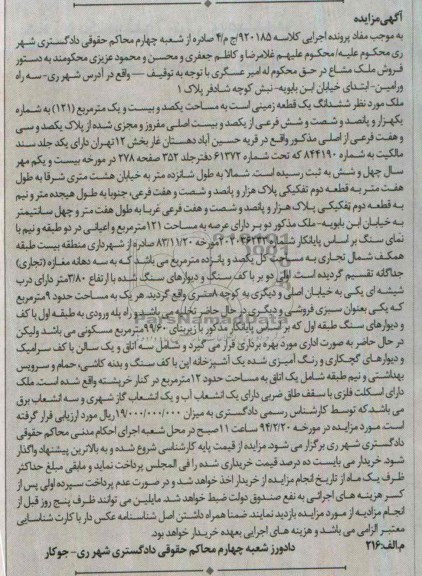 آگهی مزایده
به موجب مفاد پرونده اجرایی کلاسه ۹۲۰۱۸۵/ج م/۴ صادره از شعبه چهارم محاکم حقوقی دادگستری شهر
ری محکوم علیه/ محکوم علیهم غلامرضا و کاظم جعفری و محسن و محمود عزیزی محکومند به دستور
فروش ملک مشاع در حق محکوم له امیر عسگری با توجه به توقیف — واقع در آدرس شهر ری- سه راه
ورامین- ابتدای خیابان ابن بابویه- نبش کوچه شادفر پلاک ۱
ملک مورد نظر ششدانگ یک قطعه زمینی است به مساحت یکصد و بیست و یک مترمربع (۱۲۱) به شماره
یکهزار و پانصد و شصت و شش فرعی از یکصد و بیست اصلی مفروز و مجزی شده از پلاک یکصد و سی
و هفت فرعی از اصلی مذکور واقع در قریه حسین آباد دهستان غار بخش ۱۲ تهران دارای یک جلد سند
مالکیت به شماره ۸۴۴۱۹۰ که تحت شماره ۶۱۳۷۲ دفتر جلد ۳۵۲ صفحه ۲۷۸ در مورخه بیست و یکم مهر
سال چهل و شش به ثبت رسیده است. شمالا به طول شانزده متر به خیابان هشت متری شرقا به طول
هفت متر به قطعه دوم تفکیکی پلاک هزار و پانصد و شصت و هفت فرعی، جنوبا به طول هیجده متر و نیم
به قطعه دوم تفکیکی پلاک هزار و پانصد و شصت و هفت فرعی غربا به طول هفت متر و چهل سانتیمتر
به خیابان ابن بابویه- ملک مذکور دو بر دارای عرصه به مساحت ۱۲۱ مترمربع و اعیانی در دو طبقه و نیم با
نمای سنگ بر اساس پایانکار شماره مورخه ۸۳/۱۱/۲۰ صادره از شهرداری منطقه بیست طبقه
همکف شمال تجاری به مساحت کل یکصد و پانزده مترمربع می باشد که به سه دهانه مغازه (تجاری)
جداگانه تقسیم گردیده است. اولی دو بر با کف سنگ و دیوارهای سنگ شده با ارتفاع ۳/۸۰ متر دارای درب
شیشه ای یکی به خیابان اصلی و دیگری به کوچه ۸ متری واقع گردید. هر یک به مساحت حدود ۹ مترمربع
که یکی بعنوان سبزی فروشی و دیگری در حال حاضر تخلیه می باشد و راه پله ورودی به طبقه اول با کف
و دیوارهای سنگ طبقه اول که بر اساس پایانکار مذکور با زیربنای ۹۹/۶۰ مترمربع مسکونی می باشد ولیکن
در حال حاضر به صورت اداری مورد بهره برداری قرار می گیرد و شامل سه اتاق و یک سالن با کف سرامیک
و دیوارهای گچکاری و رنگ آمیزی شده یک آشپزخانه اپن با کف سنگ و بدنه کاشی، حمام و سرویس
بهداشتی و نیم طبقه شامل یک اتاق به مساحت حدود ۱۲ مترمربع در کنار خرپشته واقع شده است. ملک
دارای اسکلت فلزی با سقف طاق ضربی دارای یک انشعاب آب و یک انشعاب گاز شهری و سه انشعاب برق
می باشد که توسط کارشناس رسمی دادگستری به میزان ۱۹/۰۰۰/۰۰۰/۰۰۰ ریال مورد ارزیابی قرار گرفته
است. مورد مزایده در مورخه ۹۴/۲/۲۰ ساعت ۱۱ صبح در محل شعبه اجرای احکام مدنی محاکم حقوقی
دادگستری شهر ری برگزار می شود. مزایده از قیمت پایه کارشناسی شروع شده و به بالاترین پیشنهاد واگذار
شود. خریدار می بایست ده درصد قیمت خریداری شده را فی المجلس پرداخت نماید و مابقی مبلغ حداکثر
ظرف یک ماه از تاریخ انجام مزایده از خریدار اخذ خواهد شد و در صورت عدم پرداخت سپرده اولی پس از
کسر هزینه های اجرائی به نفع صندوق دولت ضبط خواهد شد. مایلین می توانند ظرف پنج روز قبل از
انجام مزایده از مورد مزایده بازدید نمایند. ضمنا همراه داشتن اصل شناسنامه عکس دار یا کارت شناسایی
معتبر الزامی می باشد و هزینه های اجرایی بعهده خریدار خواهد بود.
م.الف: ۲۱۶ دادورز شعبه چهارم محاکم حقوقی دادگستری شهر ری- جوکار